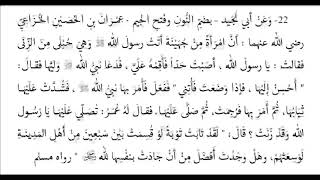 22- وَعَنْ أبي نُجَيد - بِضَم النُّونِ وَفَتْحِ الجيم - عِمْرانَ بنِ الحُصَيْنِ الخُزَاعِيِّ
رضي الله عنهما : أنَّ امْرَأةً مِنْ جُهَيْنَةَ أتَتْ رسولَ الله ﷺ وَهِيَ حُبْلَى مِنَ الزِّنَى
فقالتْ : يا رسولَ الله ، أصَبْتُ حَدّاً فَأَقِمْهُ عَلَيَّ ، فَدَعَا نَبيُّ الله ﷺ وَلِيَّها فَقالَ :
" أَحْسِنْ إِلَيْهَا ، فإذا وَضَعَتْ فَأْتِنِي " فَفَعَلَ فَأَمَرَ بِهَا نَبيُّ الله ﷺ ، فَشُدَّتْ عَلَيْهَا
ثِيَابُهَا ، ثُمَّ أمَرَ بِهَا فَرُجِمَتْ ، ثُمَّ صَلَّى عَلَيْهَا . فقالَ لَهُ عُمَرُ : تُصَلِّي عَلَيْهَا يَا رسولَ الله
وَقَدْ زَنَتْ ؟ قَالَ : " لَقَدْ تَابَتْ تَوْبَةً لَوْ قُسِمَتْ بَيْنَ سَبْعِينَ مِنْ أهْلِ المَدِينَةِ
لَوَسِعَتْهُمْ ، وَهَلْ وَجَدْتَ أَفْضَلَ مِنْ أنْ جَادَتْ بِنفْسِها لله ﷻ " رواه مسلم